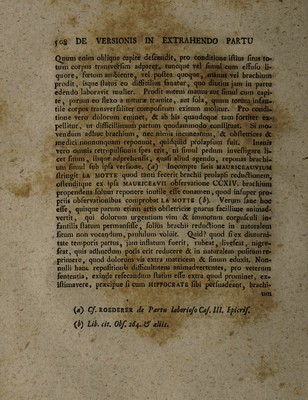 508 DE VERSIONIS IN EXTRAHENDO PARTU
Quum enim oblique capite descendit, pro conditione istius situs to-
tum corpus transversim adparet, tuncque vel simul cum effuso li-
quore, foetum ambiente, vel postea quoque, attinus vel brachium
prodit, isque status eo difficilius sanatur, quo diutius jam in partu
edendo laboravit mulier. Prodit autem manus aut simul cum capi-
te, partum eo flexo a natura tramite, aut sola, quam totum infan-
tile corpus transversaliter compositum extrema sequitur. Pro condi-
tione vero dolorum emittit, & ab his quandoque tam fortiter ex-
pellitur, ut difficillimum partum quodammodo condiscat. Si mo-
vendum adhuc brachium, nec nimis incuneatum, & obstetrices &
medici nonnunquam reponunt, quidquid prolapsum fuit. Inanis
vero omnis retropulsionis spes erit, ni simul pedum investigare li-
cet situm, iisque adprehensis, quasi aliud agendo, reponas brachi-
um simul sub ipsa versione. (a) Inconsulte satis MAURICEAVIUM
stringit LA MOTTE quod tanti fecerit brachii prolapsi reductionem,
ostenditque ex ipsa MAURICEAVII observatione CCXIV. brachium
propendens solum reponere inutile esse conamen, quod insuper pro-
priis observationibus comprobat LA MOTTE (b). Verum sane hoc
esse, quisque partum etiam artis obstetriciae gnarus facillime animad-
vertit, qui dolorum urgentium vim & immotum corpusculi in-
fantilis statum permansisse, sollus brachii reductione in naturalem
situm non vocandum, prostulum voluit. Quid? quod si ex diuturni-
tate temporis partus, jam inflatum fuerit, rubeat, livescat, nigre-
scat, quis adhucdum potis erit reducere & in naturalem position re-
primere, quod dolorum vis extra matricem & situm eduxit. Non-
nulli hanc repositionis difficultatem animadvertentes, pro veterum
sententia, exinde resecandum statim esse extra quod prominet, ex-
istimavere, praecipue si cum HIPPOCRATE sibi persuadeant, brachi-
um
(a) Cf. ROEDERER de Partu laborioso Cas. III. Epicris.
(b) Lib. cit. Obs. 264. & aliis.